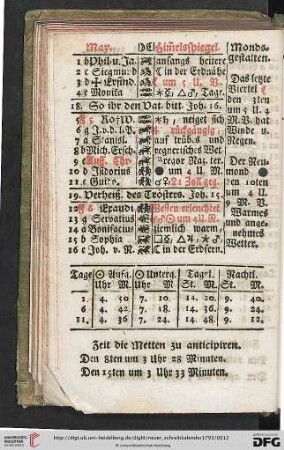 May. Himmelsspiegel. Monds-
gestalten.
1 b Phil. u. Ja. anfangs heitere
2 c Siegmund in der Erdnähe
3 d Erfind. um 5 U. V.
4 e Monika Tag.
Das letzte
Viertel
den 3ten
um 5 U. 4
M. V. hat
Winde u.
Regen.
18. So ihr den Vat. bitt. Joh. 16.
5 neiget sich
6 g J. v. d. l. P. rückgängig
7 a Stanisl. auf trüb. und
8 b Mich. Ersch. regnerisches Wet-
9 Gregor Naz. ter.
10 d Isidorius um 4 U. M.
11 e Guido.
Der Neu-
mond
den 10ten
um 4 U.
9 M. V.
Warmes
und ange-
nehmes
Wetter.
19. Verheiß. des Trösters. Joh. 15.
12 Exaudi
13 g Servatius um 4 U. N.
14 a Bonifacius ziemlich warm,
15 b Sophia
16 c Joh. v. N. in der Erdfern.
Tage Aufg. Unterg. Tagsl. Nachtl.
Uhr M Uhr M. St. M. St. M.
1. 4. 50 7. 10. 14. 20. 9. 40.
6. 4. 42. 7. 18. 14. 36. 9. 24.
11. 4. 36. 7. 24. 14. 48. 9. 12.
Zeit die Metten zu anticipiren.
Den 8ten um 3 Uhr 28 Minuten.
Den 15ten um 3 Uhr 33 Minuten.
http://digi.ub.uni-heidelberg.de/diglit/neuer_schreibkalender1793/0012
© Universitätsbibliothek Heidelberg
DFG